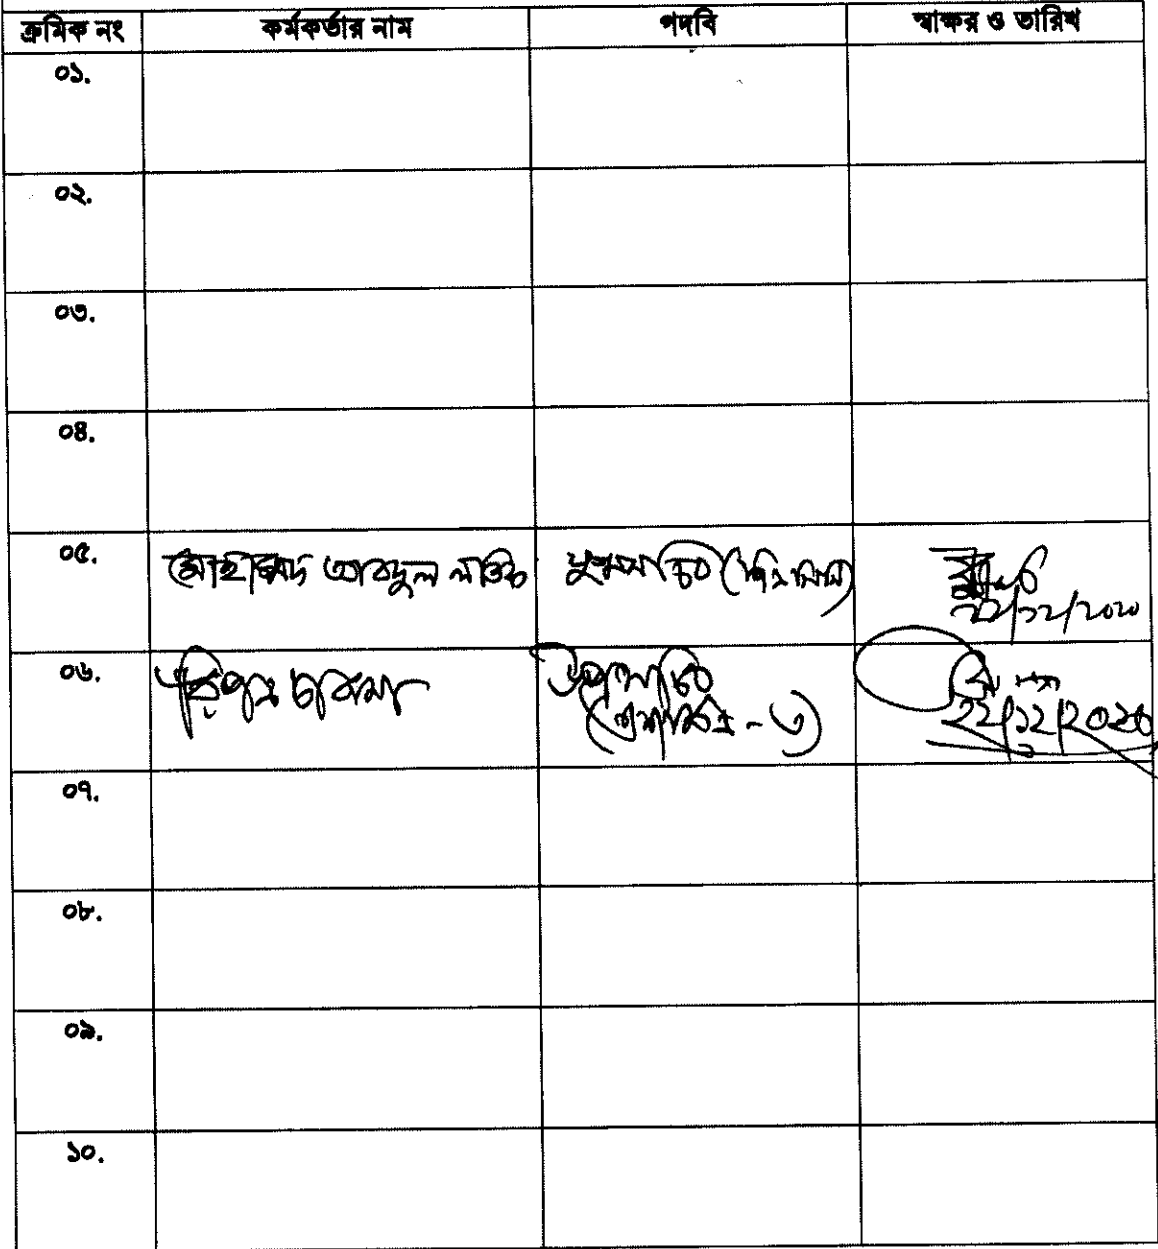 ক্রমিক নং কর্মকর্তার নাম পদবি স্বাক্ষর ও তারিখ
০১.
০২.
০৩.
০৪.
০৫. মোহাম্মদ আবদুল লতিফ যুগ্মসচিব
২২/১২/২০২০
০৬. রিপন চাকমা উপসচিব
(প্রশাসন - ৩) ২২/১২/২০২০
০৭.
০৮.
০৯.
১০.